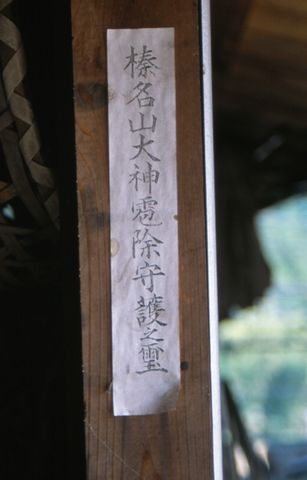 榛名山大神雹除守護之璽